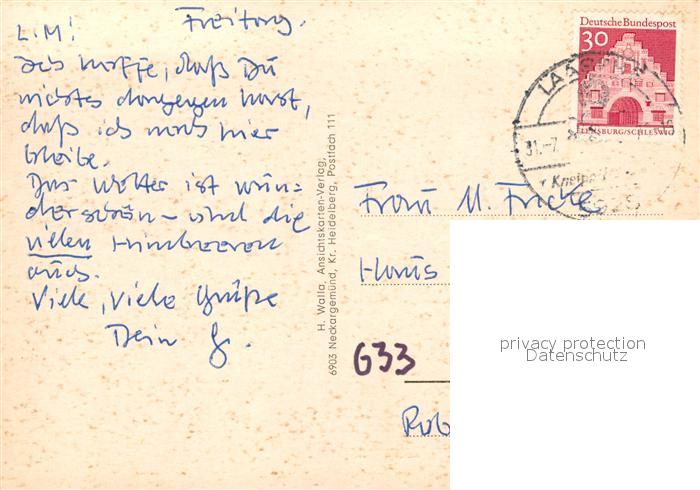 Freitag.
L.M!
Ich hoffe, daß Du
nichts dagegen hast,
daß ich noch hier
bleibe.
Das Wetter ist wun=
derschön – und die
vielen Himbeeren
auch.
Viele, viele Grüße
Dein G.
H. Walla, Ansichtskarten-Verlag,
6903 Neckargemünd, Kr. Heidelberg, Postfach 111
Deutsche Bundespost
30
FLENSBURG/SCHLESWIG
31.-7.
Kneipp
Frau M. Fricke
Haus
633
Rob
privacy protection
Datenschutz